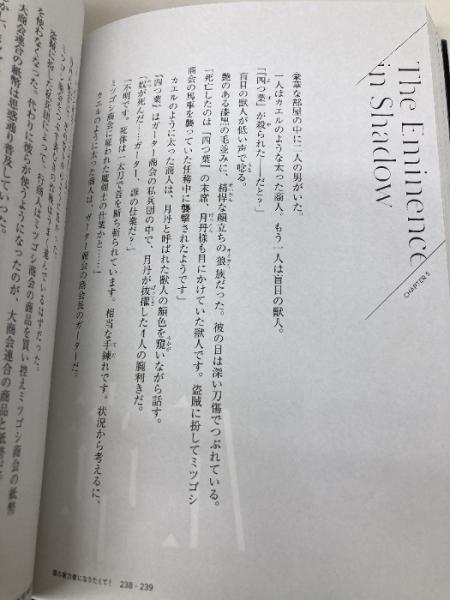 The Eminence
in Shadow
CHAPTER 5
豪華な部屋の中に二人の男がいた。
一人はカエルのような太った商人。もう一人は盲目の獣人。
「『四つ葉』が殺られた──だと？」
盲目の獣人が低い声で唸る。
艶のある漆黒の毛並みに、精悍な顔立ちの狼族だった。彼の目は深い刀傷でつぶれている。
「死亡したのは『四つ葉』の末席、月丹様も目にかけていた獣人です。盗賊に扮してミツゴシ
商会の馬車を襲っていた任務中に襲撃されたようです」
カエルのように太った商人は、月丹と呼ばれた獣人の顔色を窺いながら話す。
『四つ葉』はガーター商会の私兵団の中で、月丹が抜擢した4人の腕利きだ。
「奴が死んだ……ガーター、誰の仕業だ？」
「不明です。死体は一太刀で首を断ち斬られています。相当な手練れです。状況から考えるに、
ミツゴシ商会に雇われた魔剣士の仕業かと……」
カエルのように太った商人は、ガーター商会の商会長のガーターだ。
そ使わなくなった。代わりに彼らが使うようになったのが、大商会連合の商品と紙幣
大商会連合の紙幣は思惑通り普及していった。
陰の実力者になりたくて！
238 - 239